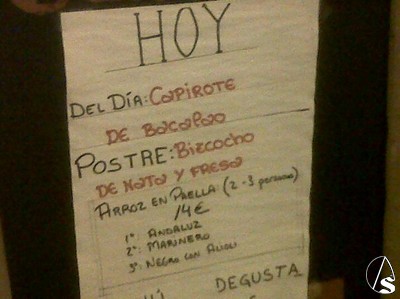 HOY
DEL DÍA: CAPIROTE
DE BACALAO
POSTRE: BIZCOCHO
DE NATA Y FRESA
ARROZ EN PAELLA: (2-3 personas)
14€
1º: ANDALUZ
2º: MARINERO
3º: NEGRO CON ALIOLI
DEGUSTA